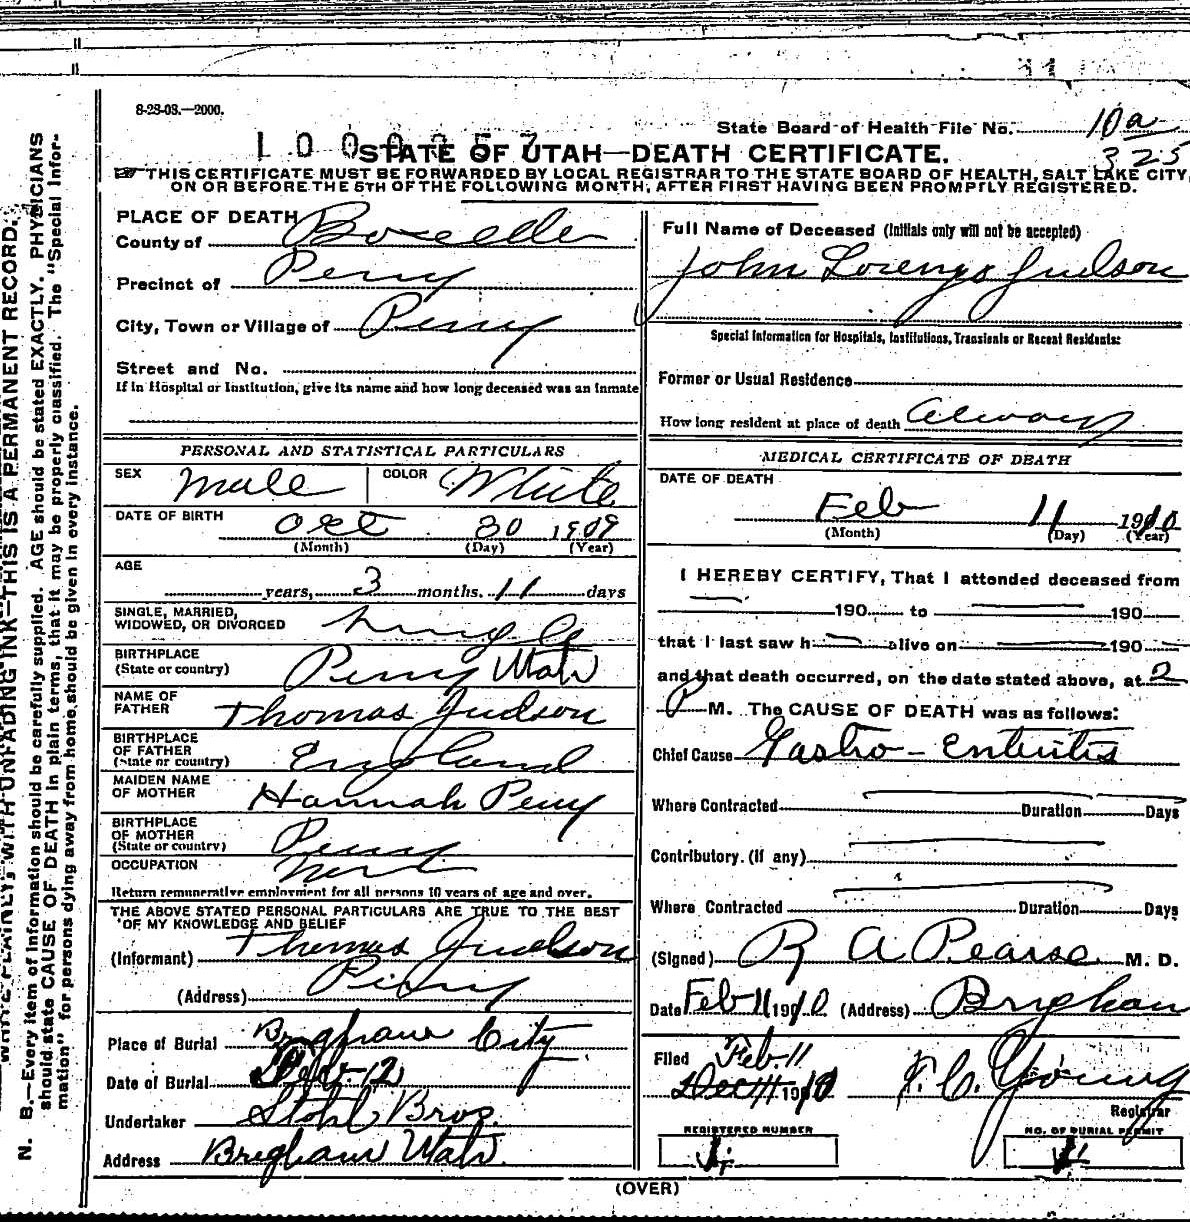 8-28-08.—2000.
State Board of Health File No. 10a
1000257
325
STATE OF UTAH—DEATH CERTIFICATE.
THIS CERTIFICATE MUST BE FORWARDED BY LOCAL REGISTRAR TO THE STATE BOARD OF HEALTH, SALT LAKE CITY,
ON OR BEFORE THE 5TH OF THE FOLLOWING MONTH, AFTER FIRST HAVING BEEN PROMPTLY REGISTERED.
PLACE OF DEATH
County of Boxelder
Precinct of Perry
City, Town or Village of Perry
Street and No.
If in Hospital or Institution, give its name and how long deceased was an inmate
PERSONAL AND STATISTICAL PARTICULARS
SEX Male COLOR White
DATE OF BIRTH Oct 30 1909
(Month) (Day) (Year)
AGE
years, 3 months. 11 days
SINGLE, MARRIED,
WIDOWED, OR DIVORCED Single
BIRTHPLACE
(State or country) Perry Utah
NAME OF
FATHER Thomas Judson
BIRTHPLACE
OF FATHER
(State or country) England
MAIDEN NAME
OF MOTHER Hannah Perry
BIRTHPLACE
OF MOTHER
(State or country) Perry
OCCUPATION
Return remunerative employment for all persons 10 years of age and over.
THE ABOVE STATED PERSONAL PARTICULARS ARE TRUE TO THE BEST
OF MY KNOWLEDGE AND BELIEF
(Informant) Thomas Judson
(Address) Perry
Place of Burial Brigham City
Date of Burial Feb. 12
Undertaker Stohl Bros.
Address Brigham Utah.
Full Name of Deceased (Initials only will not be accepted)
John Lorenzo Judson
Special Information for Hospitals, Institutions, Transients or Recent Residents:
Former or Usual Residence
How long resident at place of death Always
MEDICAL CERTIFICATE OF DEATH
DATE OF DEATH
Feb 11 1910
(Month) (Day) (Year)
I HEREBY CERTIFY, That I attended deceased from
190 to 190
that I last saw h alive on 190
and that death occurred, on the date stated above, at 2
P M. The CAUSE OF DEATH was as follows:
Chief Cause Gastro-Enteritis
Where Contracted Duration Days
Contributory. (If any)
Where Contracted Duration Days
(Signed) R A Pearse M. D.
Date Feb 11 1910 (Address) Brigham
Filed Feb. 11
Dec 11 1910 F. C. Young
Registrar
REGISTERED NUMBER
NO. OF BURIAL PERMIT
(OVER)
WRITE PLAINLY, WITH UNFADING INK—THIS IS A PERMANENT RECORD.
N. B.—Every item of information should be carefully supplied. AGE should be stated EXACTLY. PHYSICIANS
should state CAUSE OF DEATH in plain terms, that it may be properly classified. The "Special Infor-
mation" for persons dying away from home should be given in every instance.